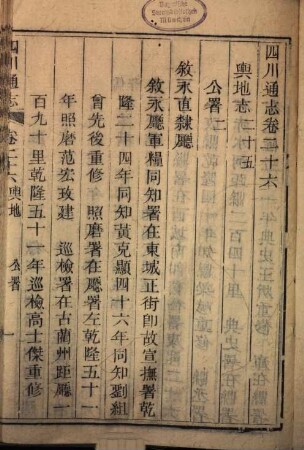 四川通志卷二十六
輿地志二十五
公署二
敘永直隸廳
敘永廳軍糧同知署在東城正街卽故宣撫署乾
隆二十四年同知黃克顯四十六年同知劉組
曾先後重修 照磨署在廳署左乾隆五十一
年照磨范宏玫建 巡檢署在古藺州距廳一
百九十里乾隆五十一年巡檢高士傑重修
四川通志
卷二十六輿地
公署
一